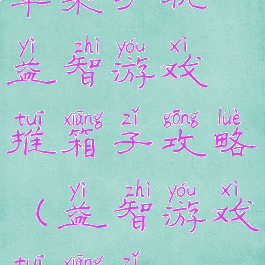 yì zhì yóu xì
益智游戏
tuī xiāng zǐ gōng lüè
推箱子攻略
yì zhì yóu xì
(益智游戏
tuī xiāng zǐ